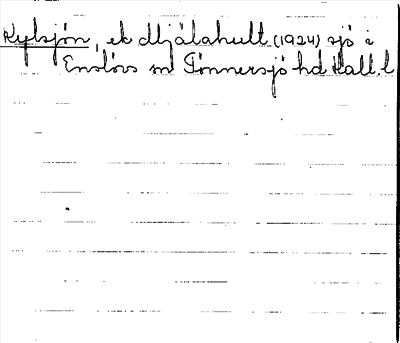 Kylsjön, ek Mjälahult (1924) sjö i
Enslövs sn Tönnersjö hd Hall. l